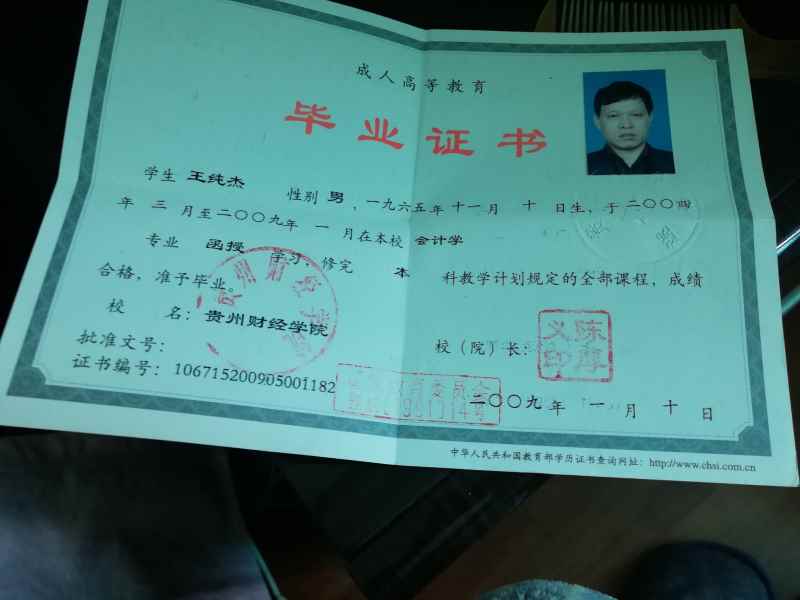 成人高等教育
毕业证书
学生 王纯杰 性别 男 ，一九六五年 十一月 十 日生，于二〇〇四
年 三 月至二〇〇九年 一 月在本校 会计学
专业 函授 学习，修完 本 科教学计划规定的全部课程，成绩
合格，准予毕业。
校 名：贵州财经学院
校（院）长：
陈厚义印
批准文号：
证书编号：106715200905001182
二〇〇九年 一 月 十 日
中华人民共和国教育部学历证书查询网址：http://www.chsi.com.cn